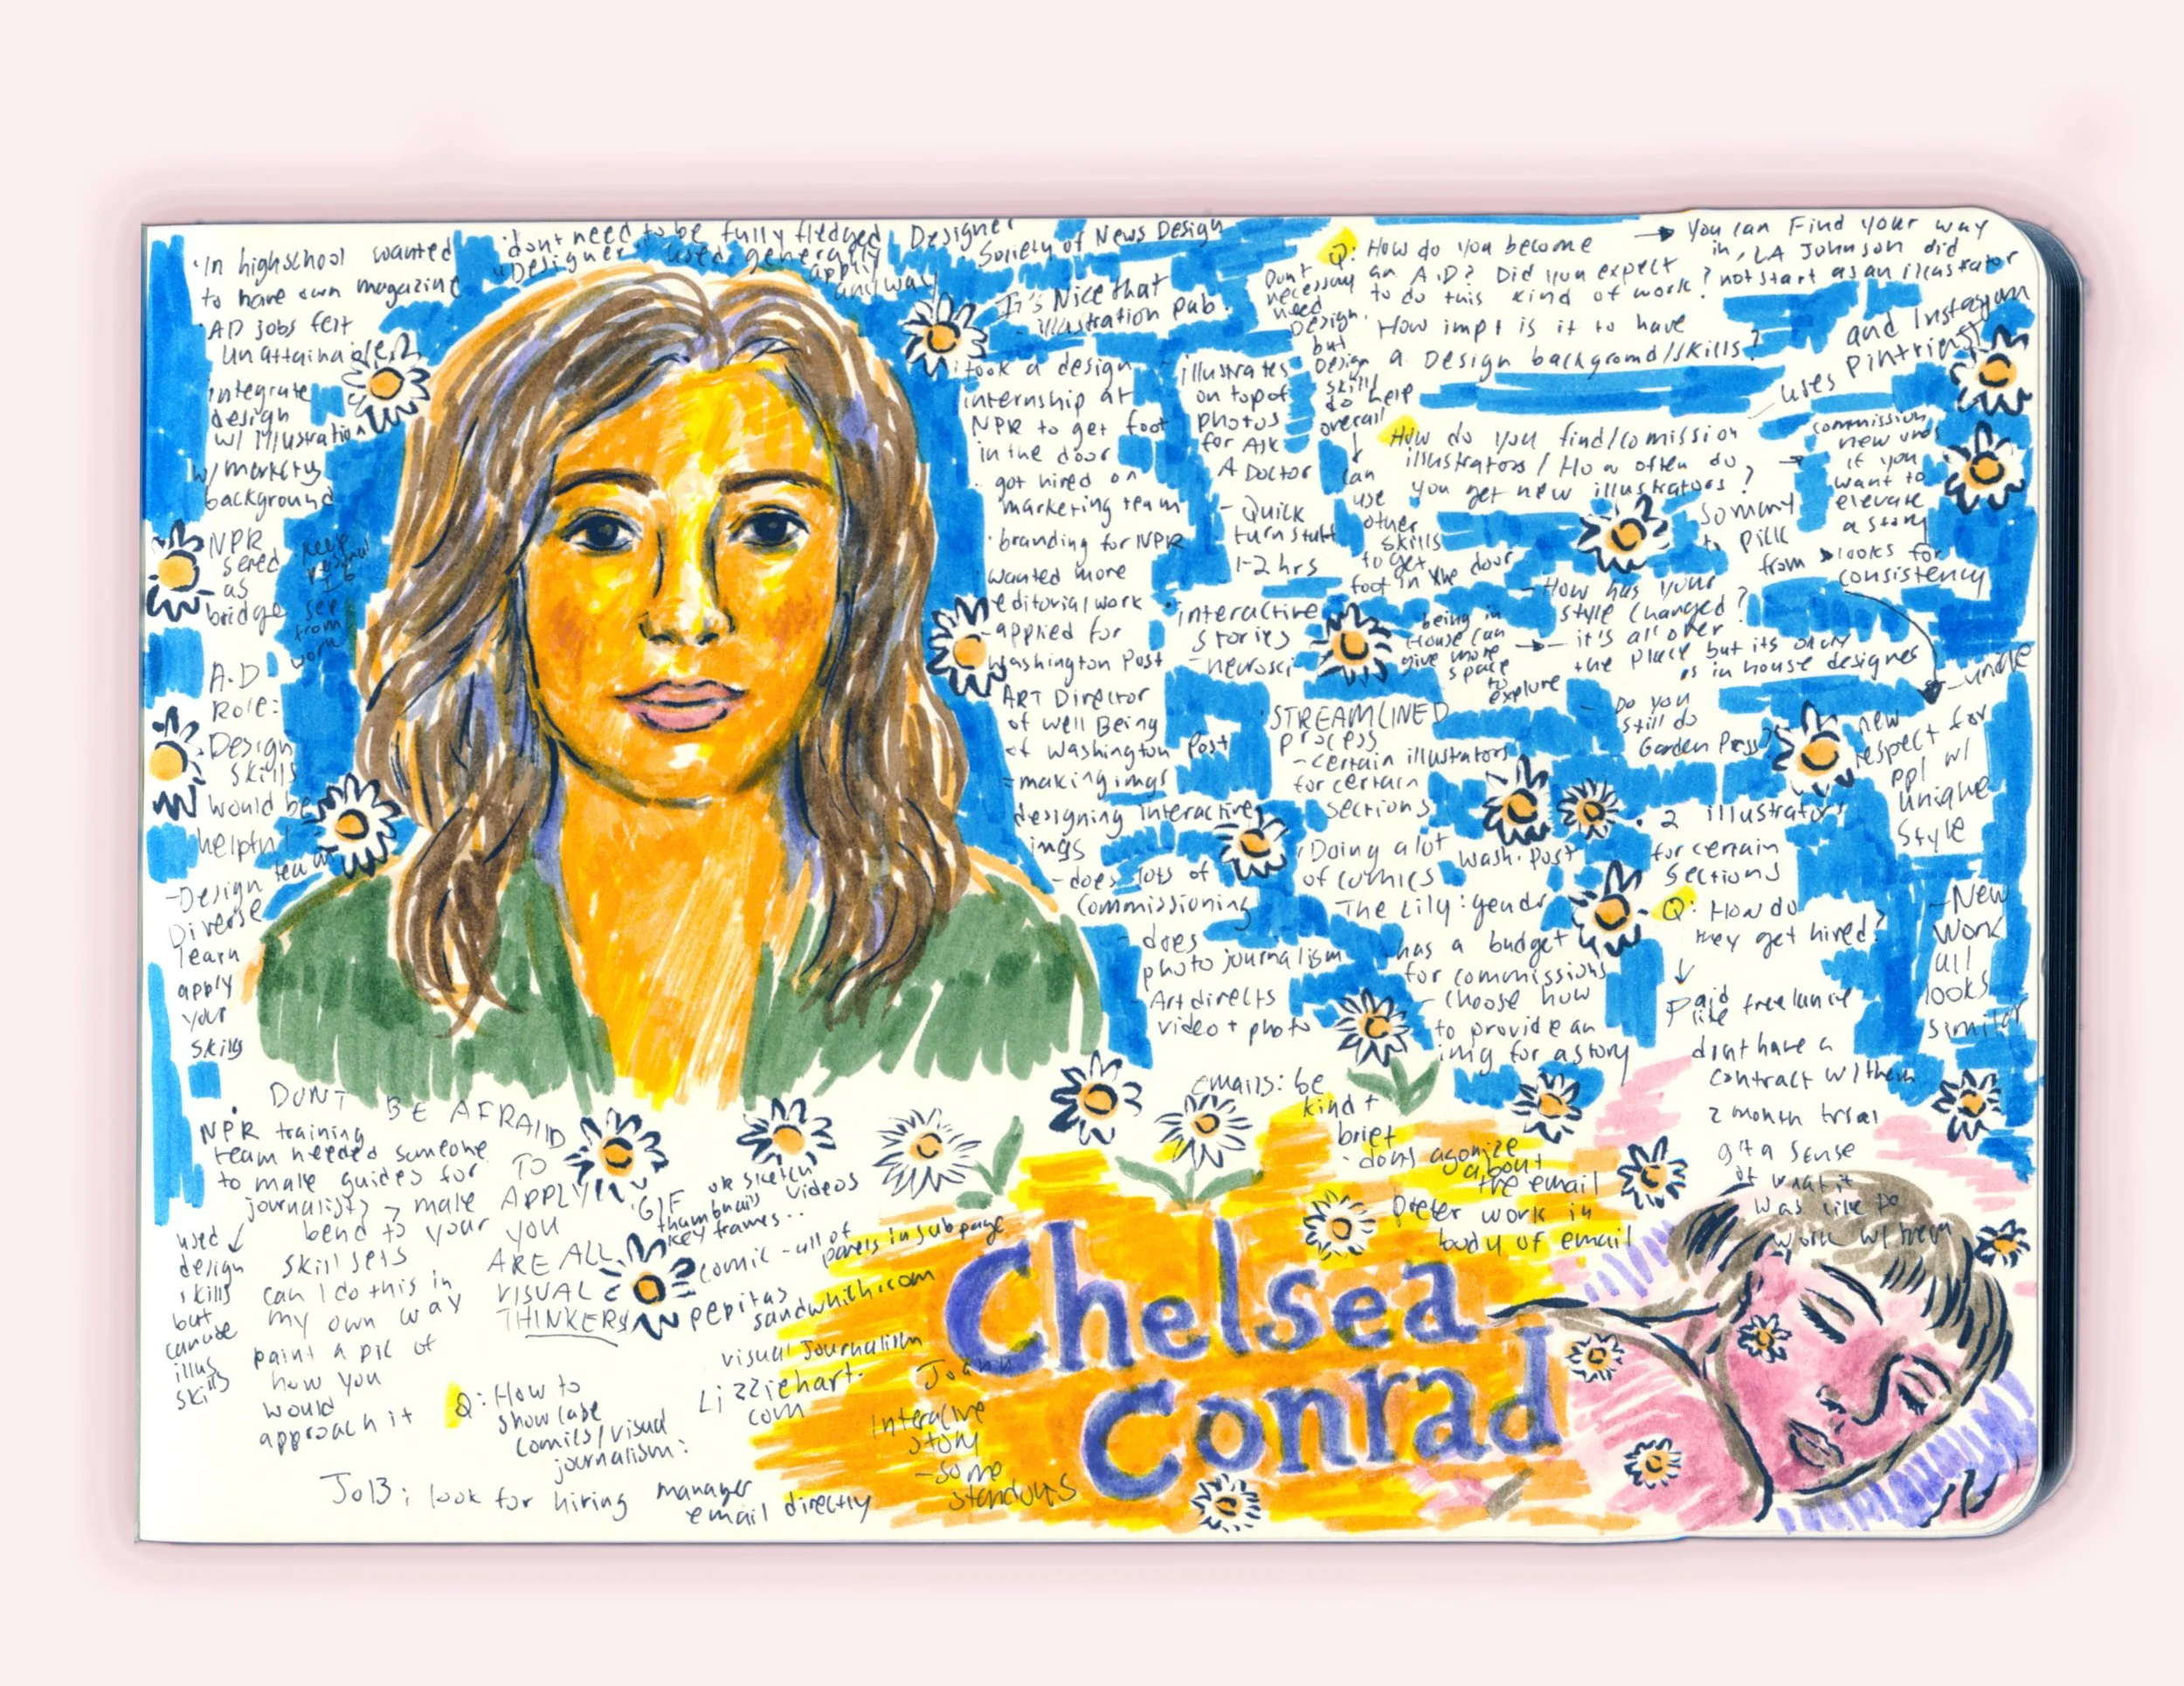 ·In highschool wanted
to have own magazine
·AD jobs felt
unattainable
integrate
design
w/ illustration
w/ marketing
background
NPR
served
as
bridge
keep
personal
see
from
work
A.D
Role:
Design
skills
would be
helpful
-Design team
Diverse
learn
apply
your
skills
·dont need to be fully fledged Designer
"Designer" used generally
apply
anyway
·Society of News Design
It's Nice that
illustration pub.
·took a design
internship at
NPR to get foot
in the door
·got hired on
marketing team
·branding for NPR
wanted more
editorial work
-applied for
Washington Post
ART Director
of Well Being
of Washington Post
=making imgs
designing interactive
ings
-does lots of
commissioning
-does
photojournalism
-Art directs
video + photo
-illustrates
on top of
photos
for Ask
A Doctor
-Quick
turn stuff
1-2 hrs
·interactive
stories
-neurosci
Don't
necessary
need
Design.
but
Design
skills
do help
overall
↓
can
use
other
skills
to get
foot in the door
Q: How do you become
an A.D? Did you expect
to do this kind of work?
How impt is it to have
a Design background/skills?
→ You can Find your way
in, LA Johnson did
not start as an illustrator
How do you find/comission
illustrators / How often do
you get new illustrators?
-uses Pintrient
and Instagram
→ commission
new unos
if you
want to
elevate
a story
so many
to pick
from → looks for
consistency
-How has your
style changed?
being in
House can
give more
space
to
explore
→ - it's all over
the place but its okay
as in house designer
- Do you
still do
Garden Press?
new
respect for
ppl w/
unique
style
STREAMLINED
process
-certain illustrators
for certain
sections
·Doing a lot
of comics
The Lily: gender
Wash. Post
·2 illustrators
for certain
sections
-has a budget
for commissions
-choose how
to provide an
img for a story
Q: How do
they get hired?
↓
Paid
like freelance
dont have a
contract w/ them
2 month trial
get a sense
of what it
was like to
work w/ them
-New
work
all
looks
similar
emails: be
kind +
brief
·dont agonize
about
the email
Prefer work in
body of email
DONT BE AFRAID
TO
APPLY
YOU
ARE ALL
VISUAL
THINKERS
·NPR training
team needed someone
to make guides for
journalists → make
bend to your
skill sets
can I do this in
my own way
paint a pic of
how you
would
approach it
used
design
skills
but
can use
illus
skills
·GIF or sketch
thumbnails videos
key frames..
comic - all of
panels in subpage
pepitas
sandwhich.com
Q: How to
showcase
comics/visual
journalism:
visual journalism
Lizziehart.
com
Joann
Interactive
story
-some
standouts
JOB: look for hiring manager
email directly
Chelsea
Conrad